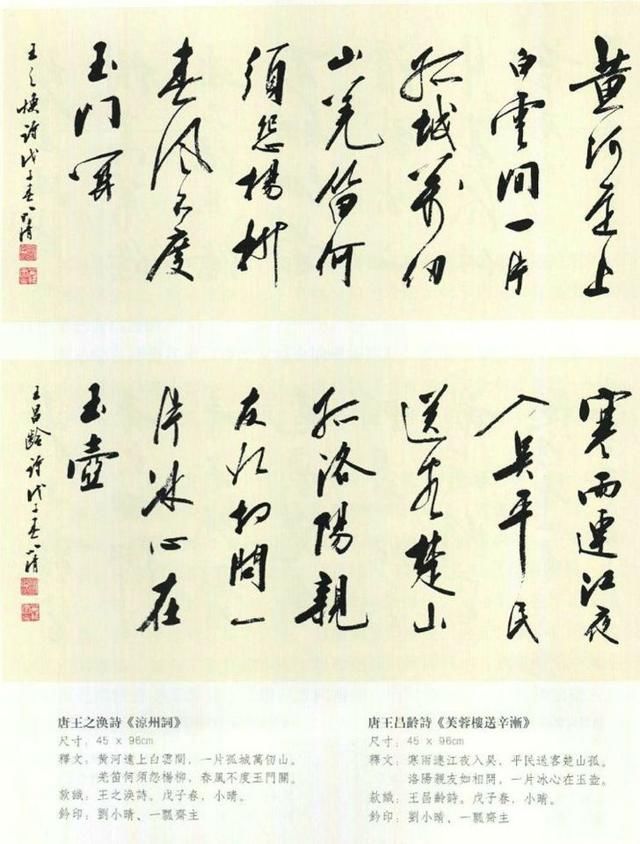 黄河遠上
白雲間一片
孤城萬仞
山羌笛何
須怨楊柳
春風不度
玉門關
王之渙詩戊子春小晴
寒雨連江夜
入吳平民
送客楚山
孤洛陽親
友如相問一
片冰心在
玉壺
王昌齡詩戊子春小晴
唐王之渙詩《涼州詞》
尺寸：45 x 96cm
釋文：黃河遠上白雲間，一片孤城萬仞山。
羌笛何須怨楊柳，春風不度玉門關。
款識：王之渙詩。戊子春，小晴。
鈐印：劉小晴、一瓢齋主
唐王昌齡詩《芙蓉樓送辛漸》
尺寸：45 x 96cm
釋文：寒雨連江夜入吳，平民送客楚山孤。
洛陽親友如相問，一片冰心在玉壺。
款識：王昌齡詩。戊子春，小晴。
鈐印：劉小晴、一瓢齋主